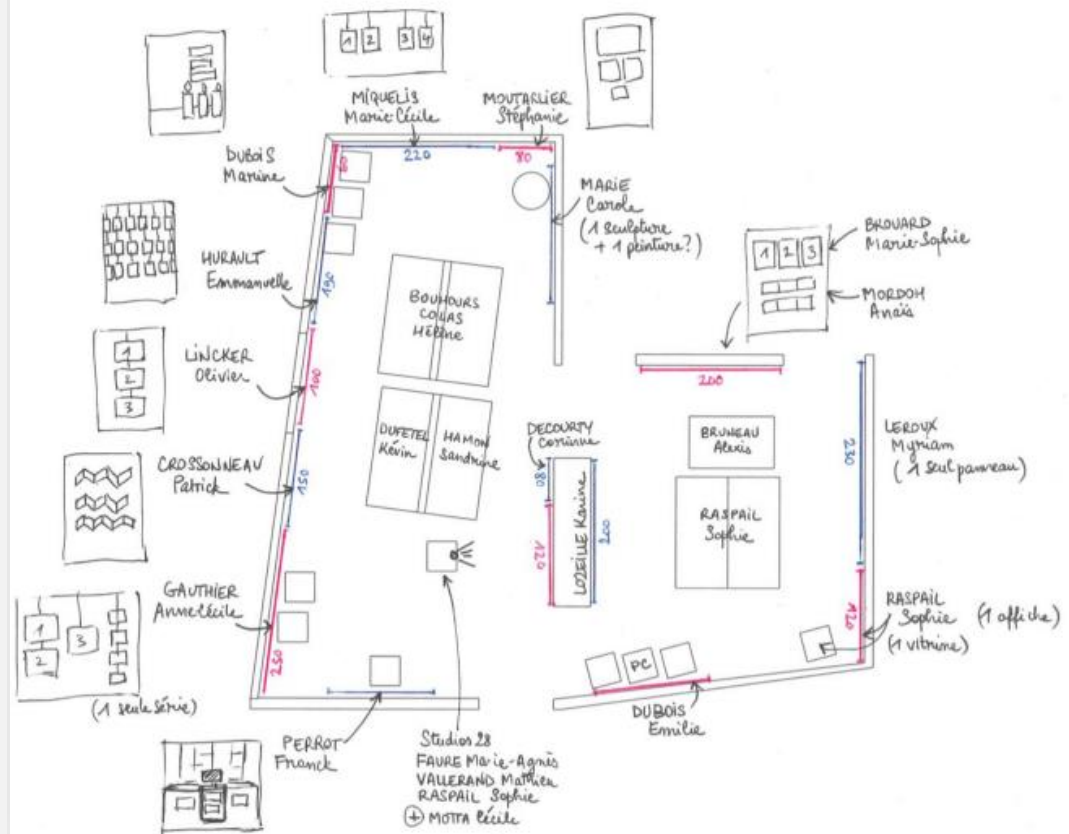 1 2 3 4
MIQUELIS
Marie-Cécile
MOUTARLIER
Stéphanie
DUBOIS
Marine
60
220
80
MARIE
Carole
(1 sculpture
+ 1 peinture?)
1 2 3
BROUARD
Marie-Sophie
MORDOH
Anaïs
HURAULT
Emmanuelle
190
BOUHOURS
COLAS
Hélène
1
2
3
LINCKER
Olivier
100
200
DUFETEL
Kévin
HAMON
Sandrine
DECOURTY
Corinne
80
120
LOZEILLE Karine
200
BRUNEAU
Alexis
RASPAIL
Sophie
230
LEROUX
Myriam
(1 seul panneau)
CROSSONNEAU
Patrick
150
GAUTHIER
Anne-Cécile
250
1
2
3
(1 seule série)
120
RASPAIL
Sophie (1 affiche)
(1 vitrine)
PC
DUBOIS
Emilie
PERROT
Franck
Studios 28
FAURE Marie-Agnès
VALLERAND Mathieu
RASPAIL Sophie
+ MOTTA Cécile